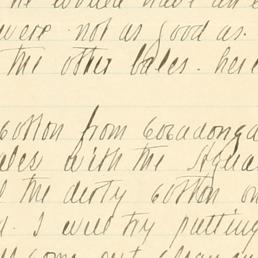 he would have an e
were not as good as.
the other bales. here
cotton from Covadonga
bales with the Squa
the dirty cotton on
I will try putting
come out clean